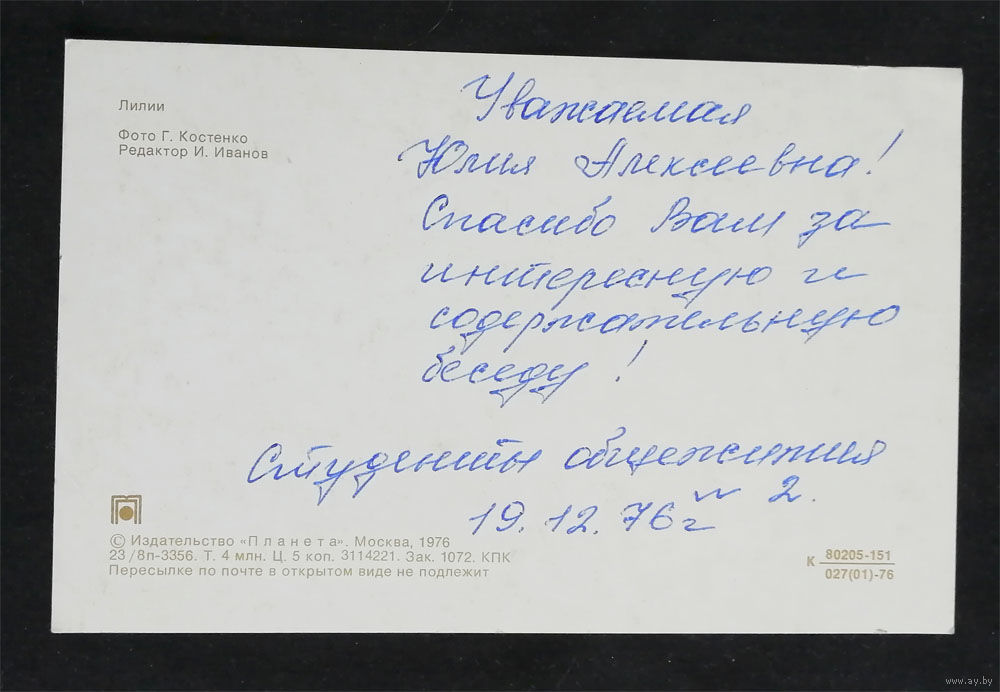 Лилии
Фото Г. Костенко
Редактор И. Иванов
Уважаемая
Юлия Алексеевна!
Спасибо Вам за
интересную и
содержательную
беседу!
Студенты общежития
№ 2.
19.12.76г
© Издательство «Планета». Москва, 1976
23/8п-3356. Т. 4 млн. Ц. 5 коп. 3114221. Зак. 1072. КПК
Пересылке по почте в открытом виде не подлежит
К 80205-151
027(01)-76
www.ay.by